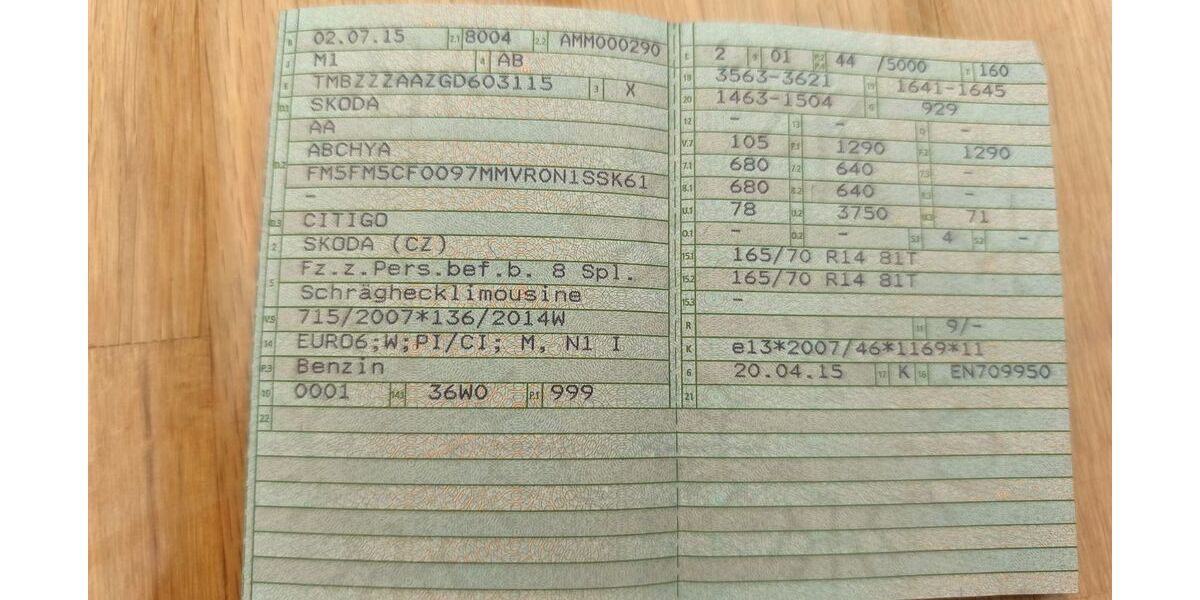 B 02.07.15 2.1 8004 2.2 AMM000290
J M1 4 AB
E TMBZZZAAZGD603115 3 X
D.1 SKODA
AA
D.2 ABCHYA
FM5FM5CF0097MMVR0N1SSK61
-
D.3 CITIGO
2 SKODA (CZ)
5 Fz.z.Pers.bef.b. 8 Spl.
Schräghecklimousine
V.9 715/2007*136/2014W
14 EURO6;W;PI/CI; M, N1 I
P.3 Benzin
10 0001 14.1 36W0 P.1 999
22
L 2 9 01 P.2 P.4 44 /5000 T 160
18 3563-3621 19 1641-1645
20 1463-1504 G 929
12 - 13 - Q -
V.7 105 F.1 1290 F.2 1290
7.1 680 7.2 640 7.3 -
8.1 680 8.2 640 8.3 -
U.1 78 U.2 3750 U.3 71
O.1 - O.2 - S.1 4 S.2 -
15.1 165/70 R14 81T
15.2 165/70 R14 81T
15.3 -
R 11 9/-
K e13*2007/46*1169*11
6 20.04.15 17 K 16 EN709950
21